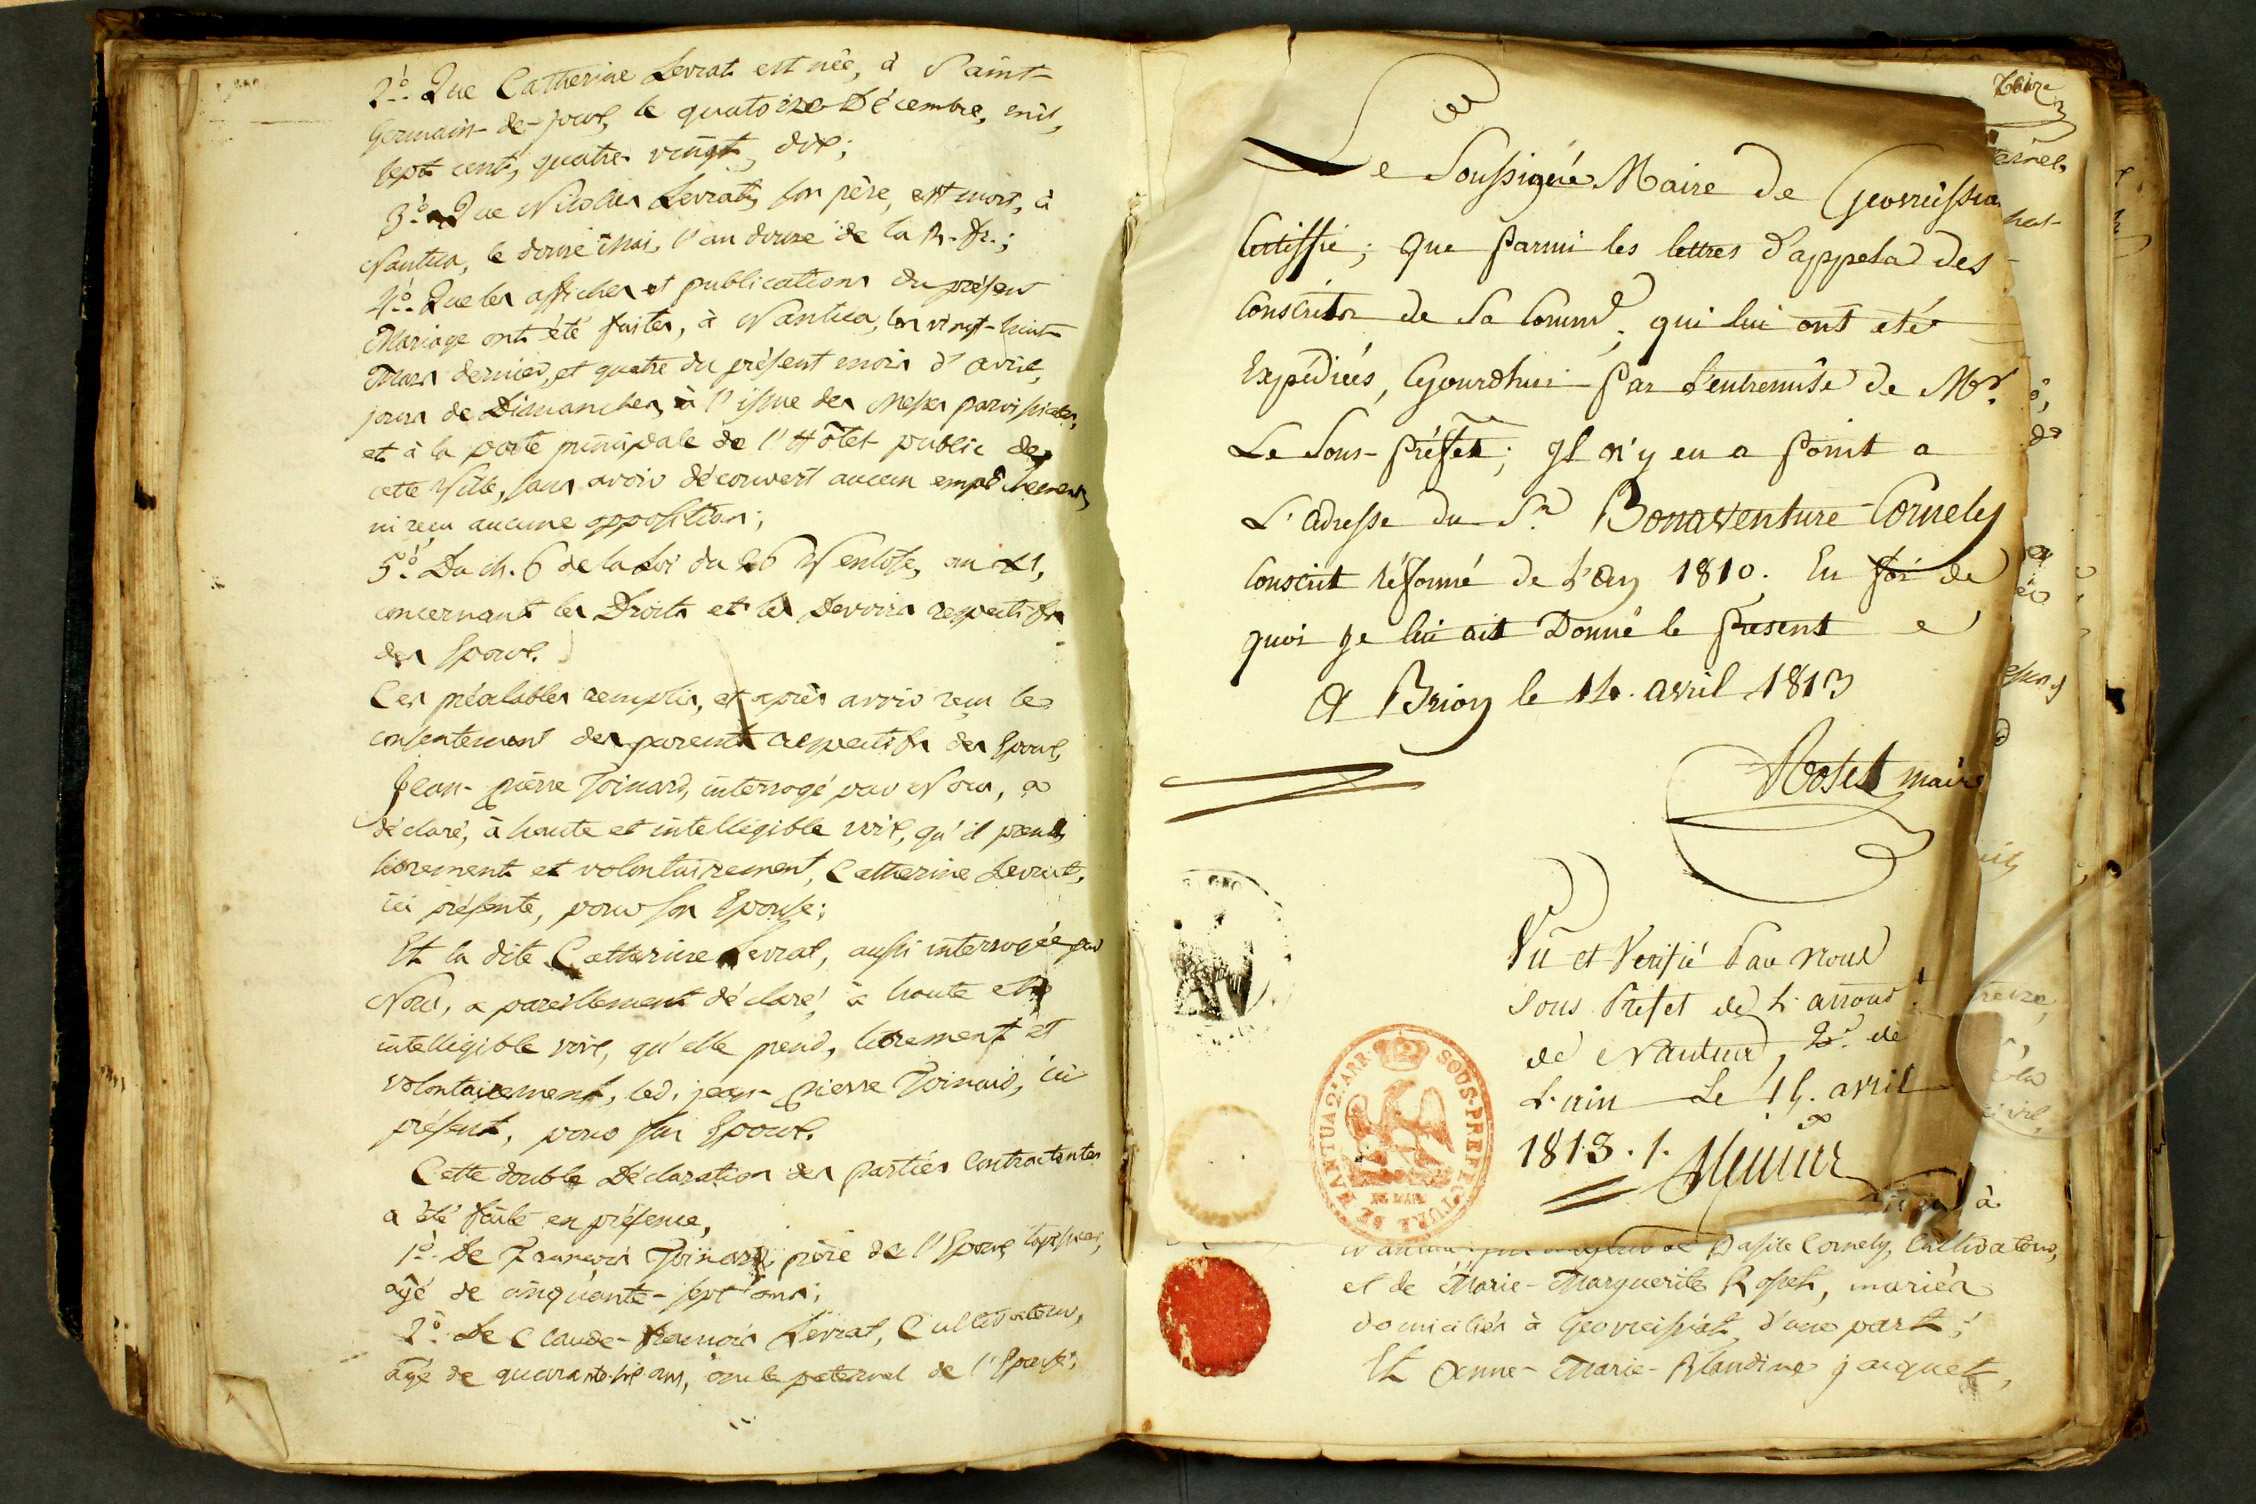 2.º Que Catherine Levrat est née, à Saint-
Germain-de-joux, le quatorze Décembre, mil,
sept cent, quatre vingt, dix;
3.º Que Nicolas Levrat, son père, est mort, à
Nantua, le douze mai, l'an douze de la R. fr.;
4.º Que les affiches et publications du présent
Mariage ont été faites, à Nantua, les vingt-huit
Mars dernier, et quatre du présent mois d'avril,
jours de Dimanches, à l'issue des Messes paroissiales,
et à la porte principale de l'Hôtel public de
cette Ville, sans avoir découvert aucun empêchement,
ni reçu aucune opposition;
5.º Du ch. 6 de la Loi du 26 Ventôse, an XI,
concernant les Droits et les Devoirs respectifs
des Epoux.
Ces préalables remplis, et après avoir reçu le
consentement des parents respectifs des Epoux,
Jean-Pierre Toinard, interrogé par Nous, a
déclaré, à haute et intelligible voix, qu'il prend,
librement et volontairement, Catherine Levrat,
ici présente, pour son Epouse;
Et la dite Catherine Levrat, aussi interrogée par
Nous, a pareillement déclaré, à haute et
intelligible voix, qu'elle prend, librement et
volontairement, led. jean-Pierre Toinard, ici
présent, pour son Epoux.
Cette double Déclaration des parties Contractantes
a été faite en présence,
1.º De François Toinard, père de l'Epoux,
âgé de cinquante-sept ans;
2.º De Claude-François Levrat, Cultivateur,
âgé de quarante-six ans, oncle paternel de l'Epouse;
Le Soussigné Maire de Geovreissia
Certiffie; que parmi les lettres d'appela des
Conscrits de Sa Comm.e, qui lui ont eté
Expédiées, Cejourdhui par l'entremise de Mr.
Le Sous-préfet; Il n'y en a point a
L'adresse du Sr. Bonaventure Cornely
Conscrit réformé de L'An 1810. En foi de
quoi Je lui ait Donné le present
A Brion le 14. avril 1813
Rosset maire
Vu et Verifié Par nous
Sous Prefet de L'arrond.t
de Nantua, D.t de
L'ain Le 15. avril
1813.
SOUS-PREFECTURE DE NANTUA 2.e ARR.
de Basile Cornely, Cultivateur,
et de Marie-Marguerite Rosset, mariés
domiciliés à Geovreissiat, d'une part;
Et Anne-Marie-Blandine jacquet,